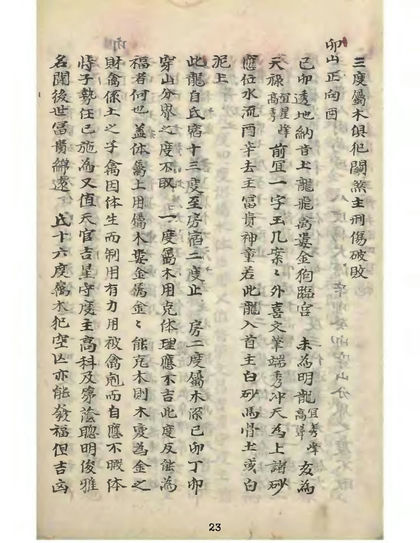 三度屬木俱犯關煞主刑傷破敗
卯山正向酉
己卯透地納音上龍飛亢婁金狗臨宮　未為明龍宜秀學高聳亥為
天祿宜星峰高秀前宜一字玉几案外喜文筆端秀冲天為上諸砂
應位水流酉辛去主富貴神童若此龍入首主白砂馬骨土或白
泥上
此龍自氐宿十三度至房宿二度止　房二度屬木深己卯丁卯
穿山分界之度不取　一度屬木用克体理應不吉此度反能為
福者何也蓋体屬土用屬木婁金屬金能克木則木變為金之
財禽係土之子禽因体生而制用有力用被禽剋而自應不暇体
恃子執任己施為又值天官吉星守度主高科及第蔭聰明俊雅
名聞後世富貴綿遠　氐十六度屬木犯空亡亦能發福但吉凶
23